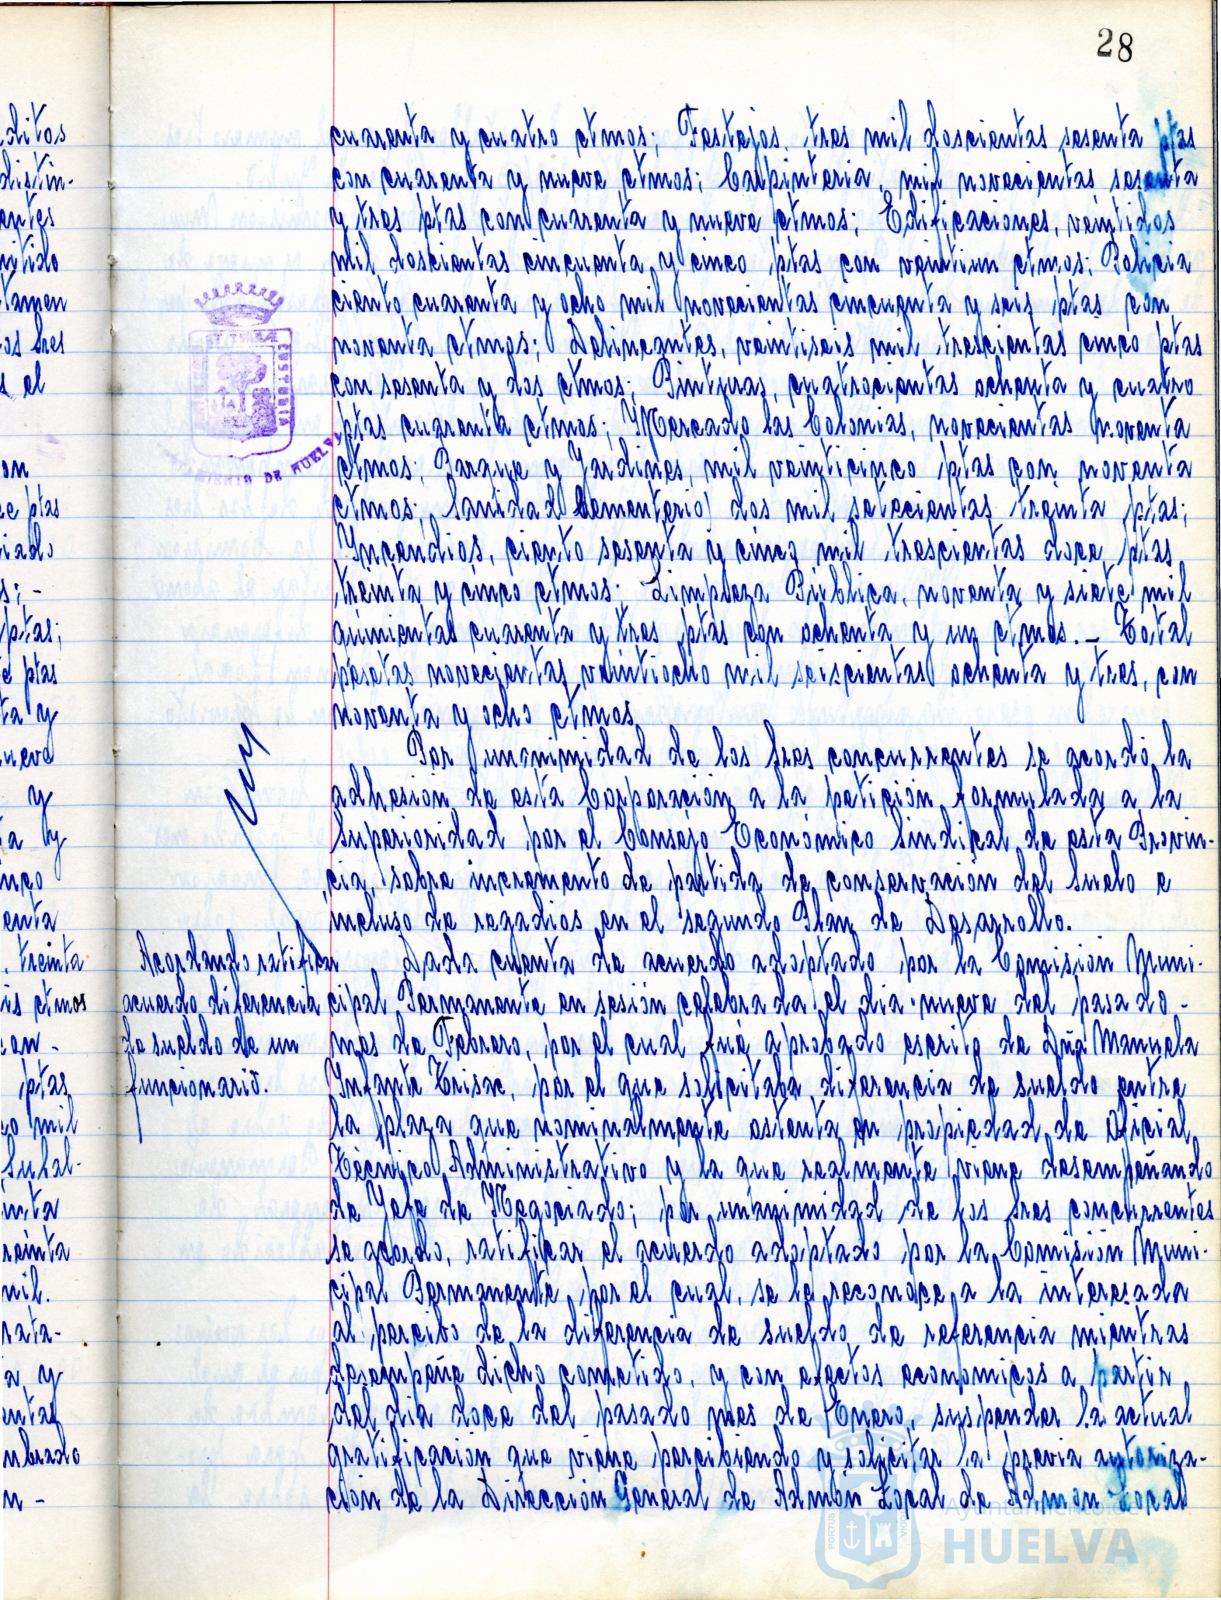 28
cuarenta y cuatro ctmos; Festejos, tres mil doscientas sesenta ptas
con cuarenta y nueve ctmos; Carpinteria, mil novecientas sesenta
y tres ptas con cuarenta y nueve ctmos; Edificaciones, veintidos
mil doscientas cincuenta y cinco ptas con veintiun ctmos; Policia
ciento cuarenta y ocho mil novecientas cincuenta y seis ptas con
noventa ctmos; Delineantes, veintiseis mil trescientas cinco ptas
con sesenta y dos ctmos; Pinturas, cuatrocientas ochenta y cuatro
ptas cuarenta ctmos; Mercado las Colonias, novecientas noventa
ctmos; Parque y Jardines, mil veinticinco ptas con noventa
ctmos; Sanidad Cementerio) dos mil setecientas treinta ptas;
Yncendios, ciento sesenta y cinco mil trescientas doce ptas
treinta y cinco ctmos; Limpieza Pública, noventa y siete mil
quinientas cuarenta y tres ptas con ochenta y un ctmos.- Total
pesetas novecientas veintiocho mil seiscientas ochenta y tres, con
noventa y ocho ctmos.
Por unanimidad de los Sres concurrentes se acordó la
adhesión de esta Corporación a la petición formulada a la
Superioridad por el Consejo Económico Sindical de esta Provin-
cia, sobre incremento de partida de conservación del Suelo e
incluso de regadios en el segundo Plan de Desarrollo.
Acordando ratificar
acuerdo diferencia
de sueldo de un
funcionario.
Dada cuenta de acuerdo adoptado por la Comisión Muni-
cipal Permanente en sesión celebrada el dia nueve del pasado-
mes de Febrero, por el cual fué aprobado escrito de Dña Manuela
Infante Trisac, por el que solicitaba diferencia de sueldo entre
la plaza que nominalmente ostenta en propiedad de Oficial
Técnico Administrativo y la que realmente viene desempeñando
de Jefe de Negociado; por unanimidad de los Sres concurrentes
se acordó, ratificar el acuerdo adoptado por la Comisión Muni-
cipal Permanente, por el cual, se le reconoce a la interesada
al percibo de la diferencia de sueldo de referencia mientras
desempeñe dicho cometido, y con efectos economicos a partir
del dia doce del pasado mes de Enero, suspender la actual
gratificación que viene percibiendo y solicitar la previa autoriza-
ción de la Dirección General de Admón Local de Admon Local
Ayuntamiento de
HUELVA